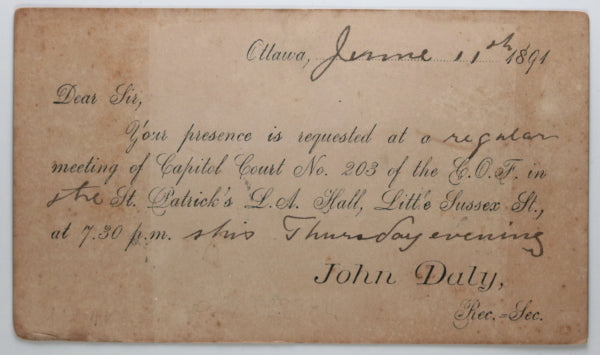 Ottawa, June 11th 1891
Dear Sir,
Your presence is requested at a regular
meeting of Capitol Court No. 203 of the C.O.F. in
the St. Patrick's L.A. Hall, Litt'e Sussex St.,
at 7.30 p.m. this Thursday evening
John Daly,
Rec.=Sec.